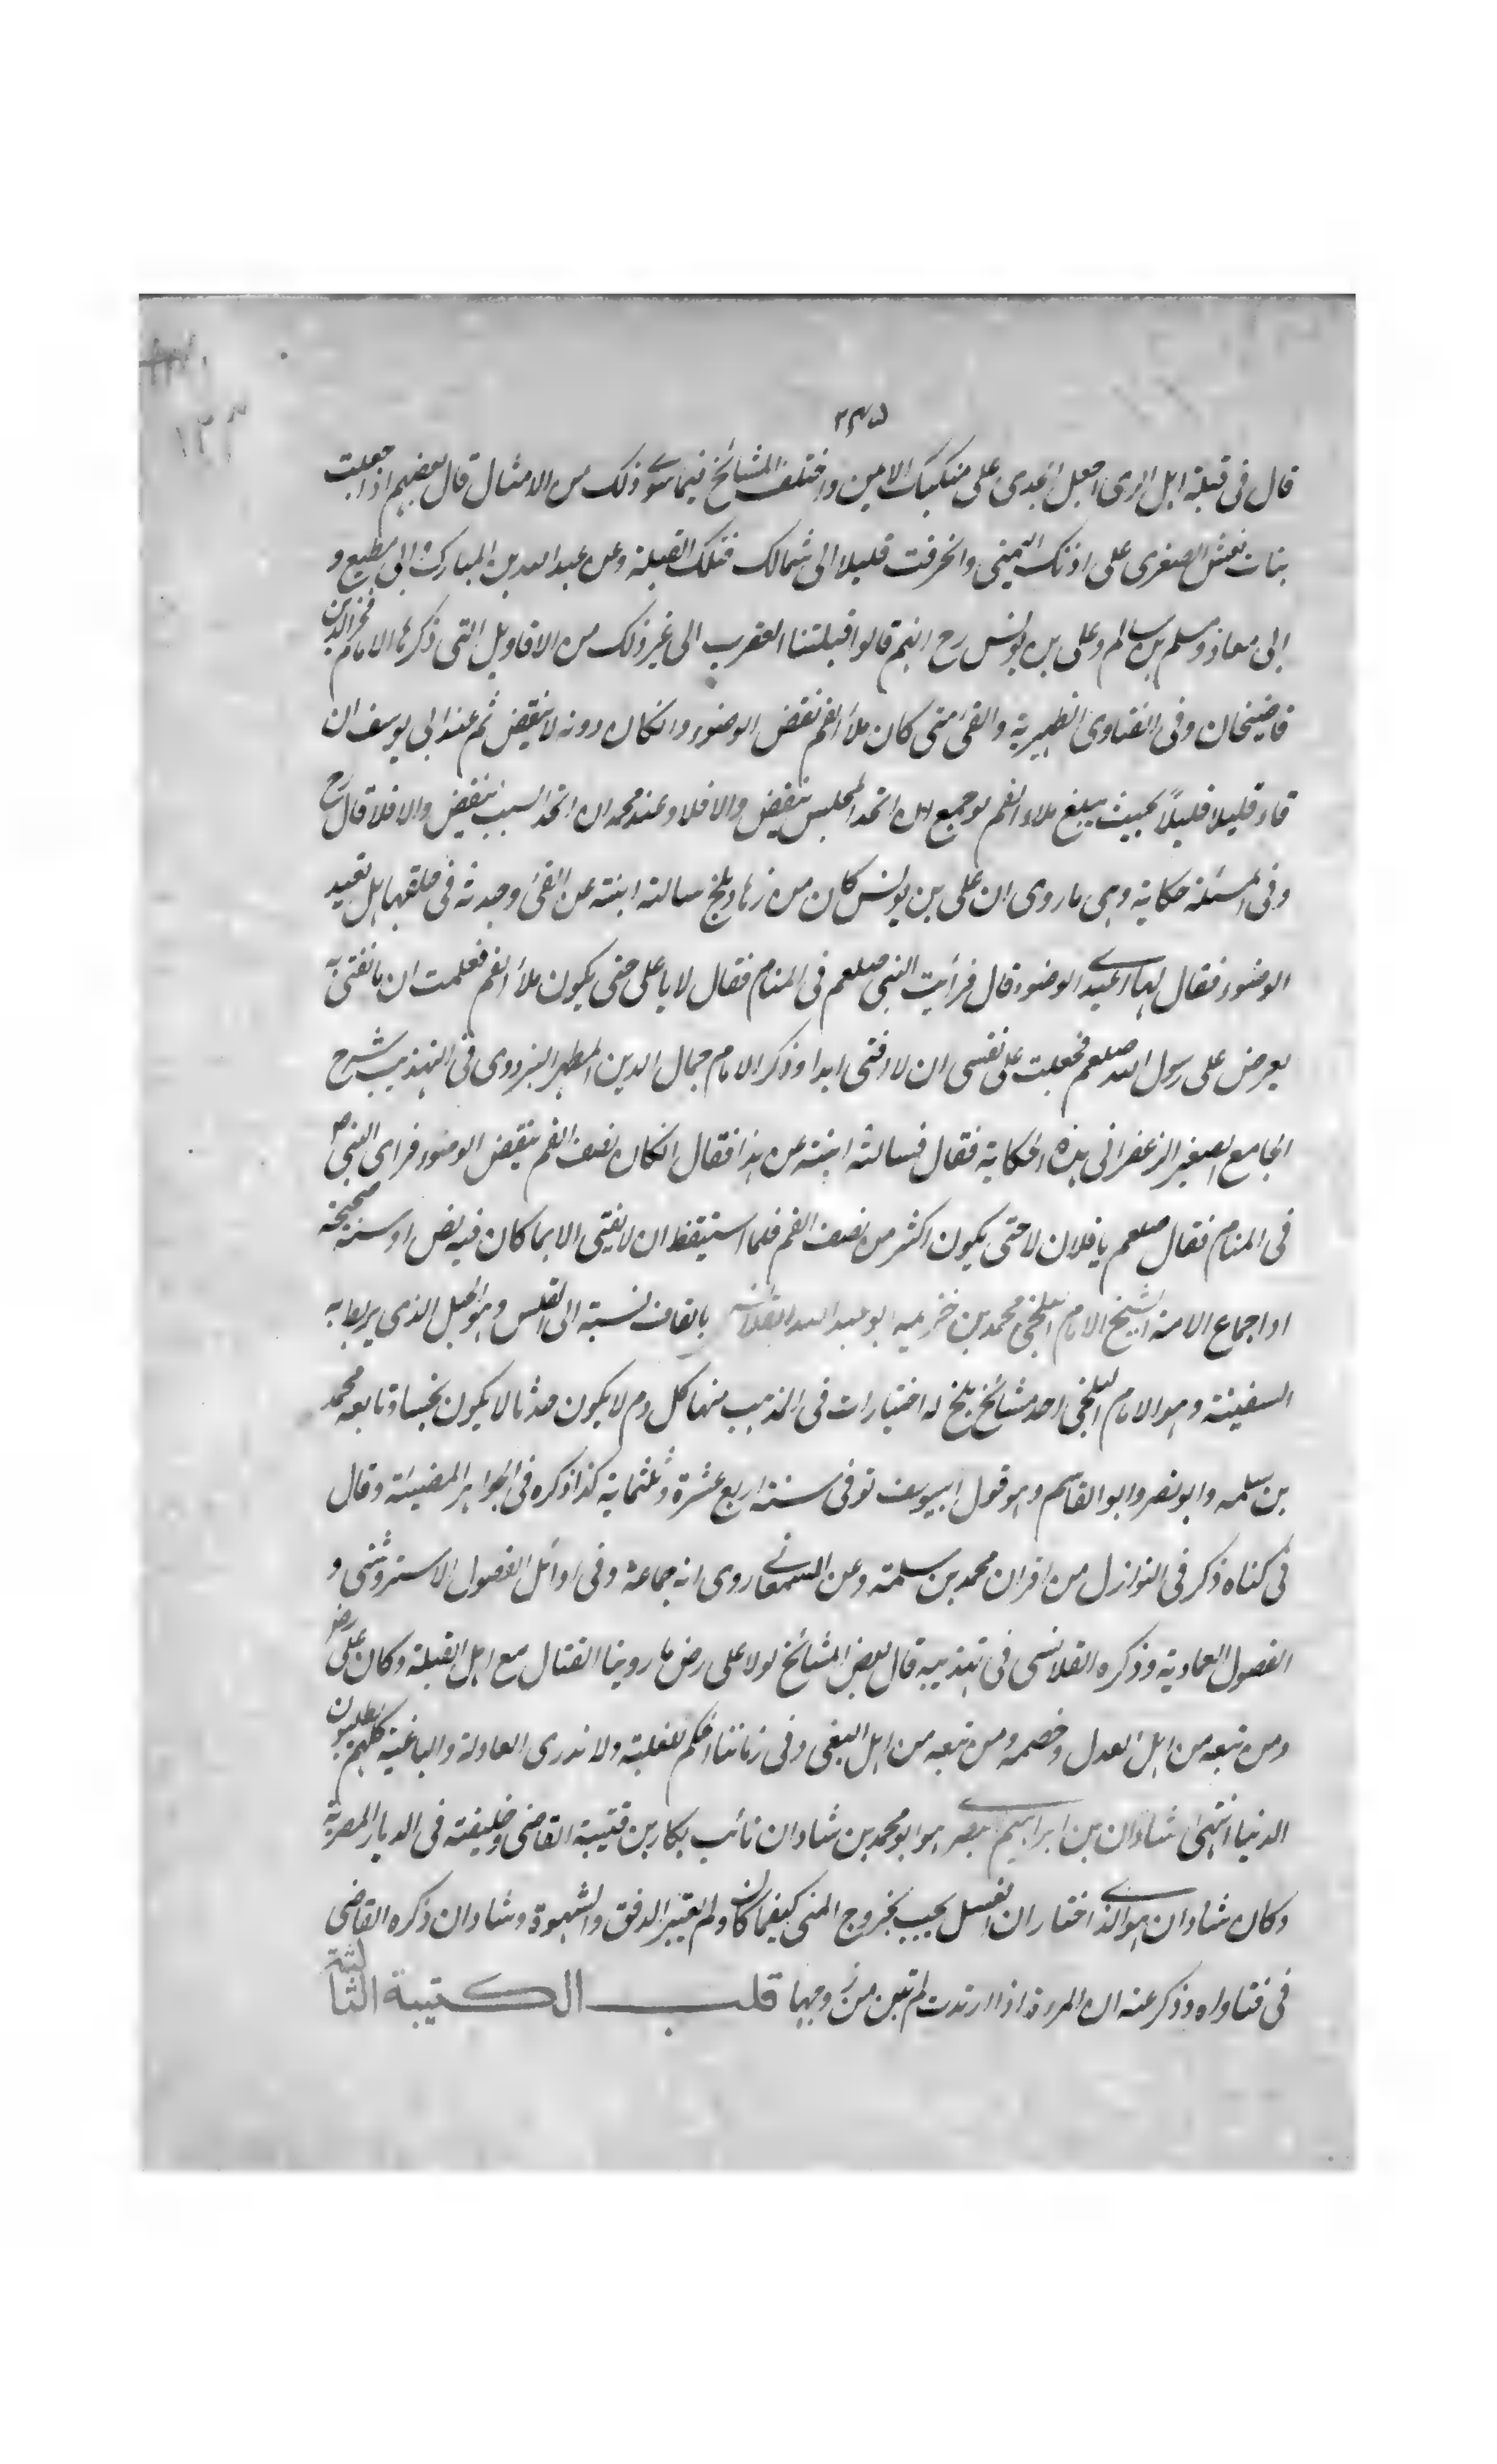 ٢٤٥
١٢٣
قال فى قبلة اهل الرى اجعل الجدى على منكبك الايمن واختلف المشائخ فيما سوى ذلك من الامثال قال بعضهم اذا جعلت
بنات نعش الصغرى على اذنك اليمنى وانحرفت قليلا الى شمالك فتلك القبلة وعن عبد الله بن المبارك وابى مطيع و
ابى معاذ ومسلم بن سالم وعلى بن يونس رح انهم قالوا قبلتنا العقرب الى غير ذلك من الاقاويل التى ذكرها الامام فخر الدين
قاضيخان وفى الفتاوى الظهيرية والقئ متى كان ملأ الفم نقض الوضوء وانكان دونه لا ينقض ثم عند ابى يوسف ان
قاء قليلا قليلاً بحيث يبلغ ملاء الفم لو جمع ان اتحد المجلس ينقض والا فلا وعند محمد ان اتحد السبب ينقض والا فلا قال رح
وفى المسئلة حكاية وهى ما روى ان على بن يونس كان من زهاد بلخ سالته ابنته عن القئ وجدته فى حلقها هل تعيد
الوضوء فقال لها اعيدى الوضوء قال فرأيت النبى صلعم فى المنام فقال لا يا على حتى يكون ملأ الفم فعلمت ان ما نفتى به
يعرض على رسول الله صلعم فجعلت على نفسى ان لا افتى ابدا وذكر الامام جمال الدين المطهر البزدوى فى التهذيب شرح
الجامع الصغير الزعفرانى هذه الحكاية فقال فسالته ابنته عن هذا فقال انكان نصف الفم ينقض الوضوء فراى النبى ص
فى المنام فقال صلعم يا فلان لا حتى يكون اكثر من نصف الفم فلما استيقظ ان لا يفتى الا بما كان فيه نص او سنة صحيحة
او اجماع الامة الشيخ الامام البلخى محمد بن خزيمه ابو عبد الله القلاس بالقاف نسبة الى القلس وهو الحبل الذى يربط به
السفينة وهو الامام البلخى احد مشائخ بلخ له اختيارات فى المذهب منها كل دم لا يكون حدثا لا يكون نجسا وتابعه محمد
بن سلمه وابو نصر وابو القاسم وهو قول ابيوسف توفى سنة اربع عشرة وثلثماية كذا ذكره فى الجواهر المضيئة وقال
فى كناه ذكر فى النوازل من اقران محمد بن سلمة وعن السمعانى روى انه جماعة وفى اوائل الفصول الاستروشنى و
الفصول العمادية وذكره القلانسى فى تهذيبه قال بعض المشائخ لولا على رض ما روينا القتال مع اهل القبلة وكان على رض
ومن تبعه من اهل العدل وخصمه ومن تبعه من اهل البغى وفى زماننا الحكم للغلبة ولا ندرى العادلة والباغية كلهم يطلبون
الدنيا انتهى شاذان بن ابراهيم بصر هو ابو محمد بن شاذان نائب بكار بن قتيبة القاضى وخليفته فى الديار المصرية
وكان شاذان هو الذى اختار ان الغسل يجب بخروج المنى كيفما كان ولم يعتبر الدفق والشهوة وشاذان ذكره القاضى
فى فتاواه وذكر عنه ان المرءة اذا ارتدت لم تبن من زوجها قلب الكتيبة الثالثة